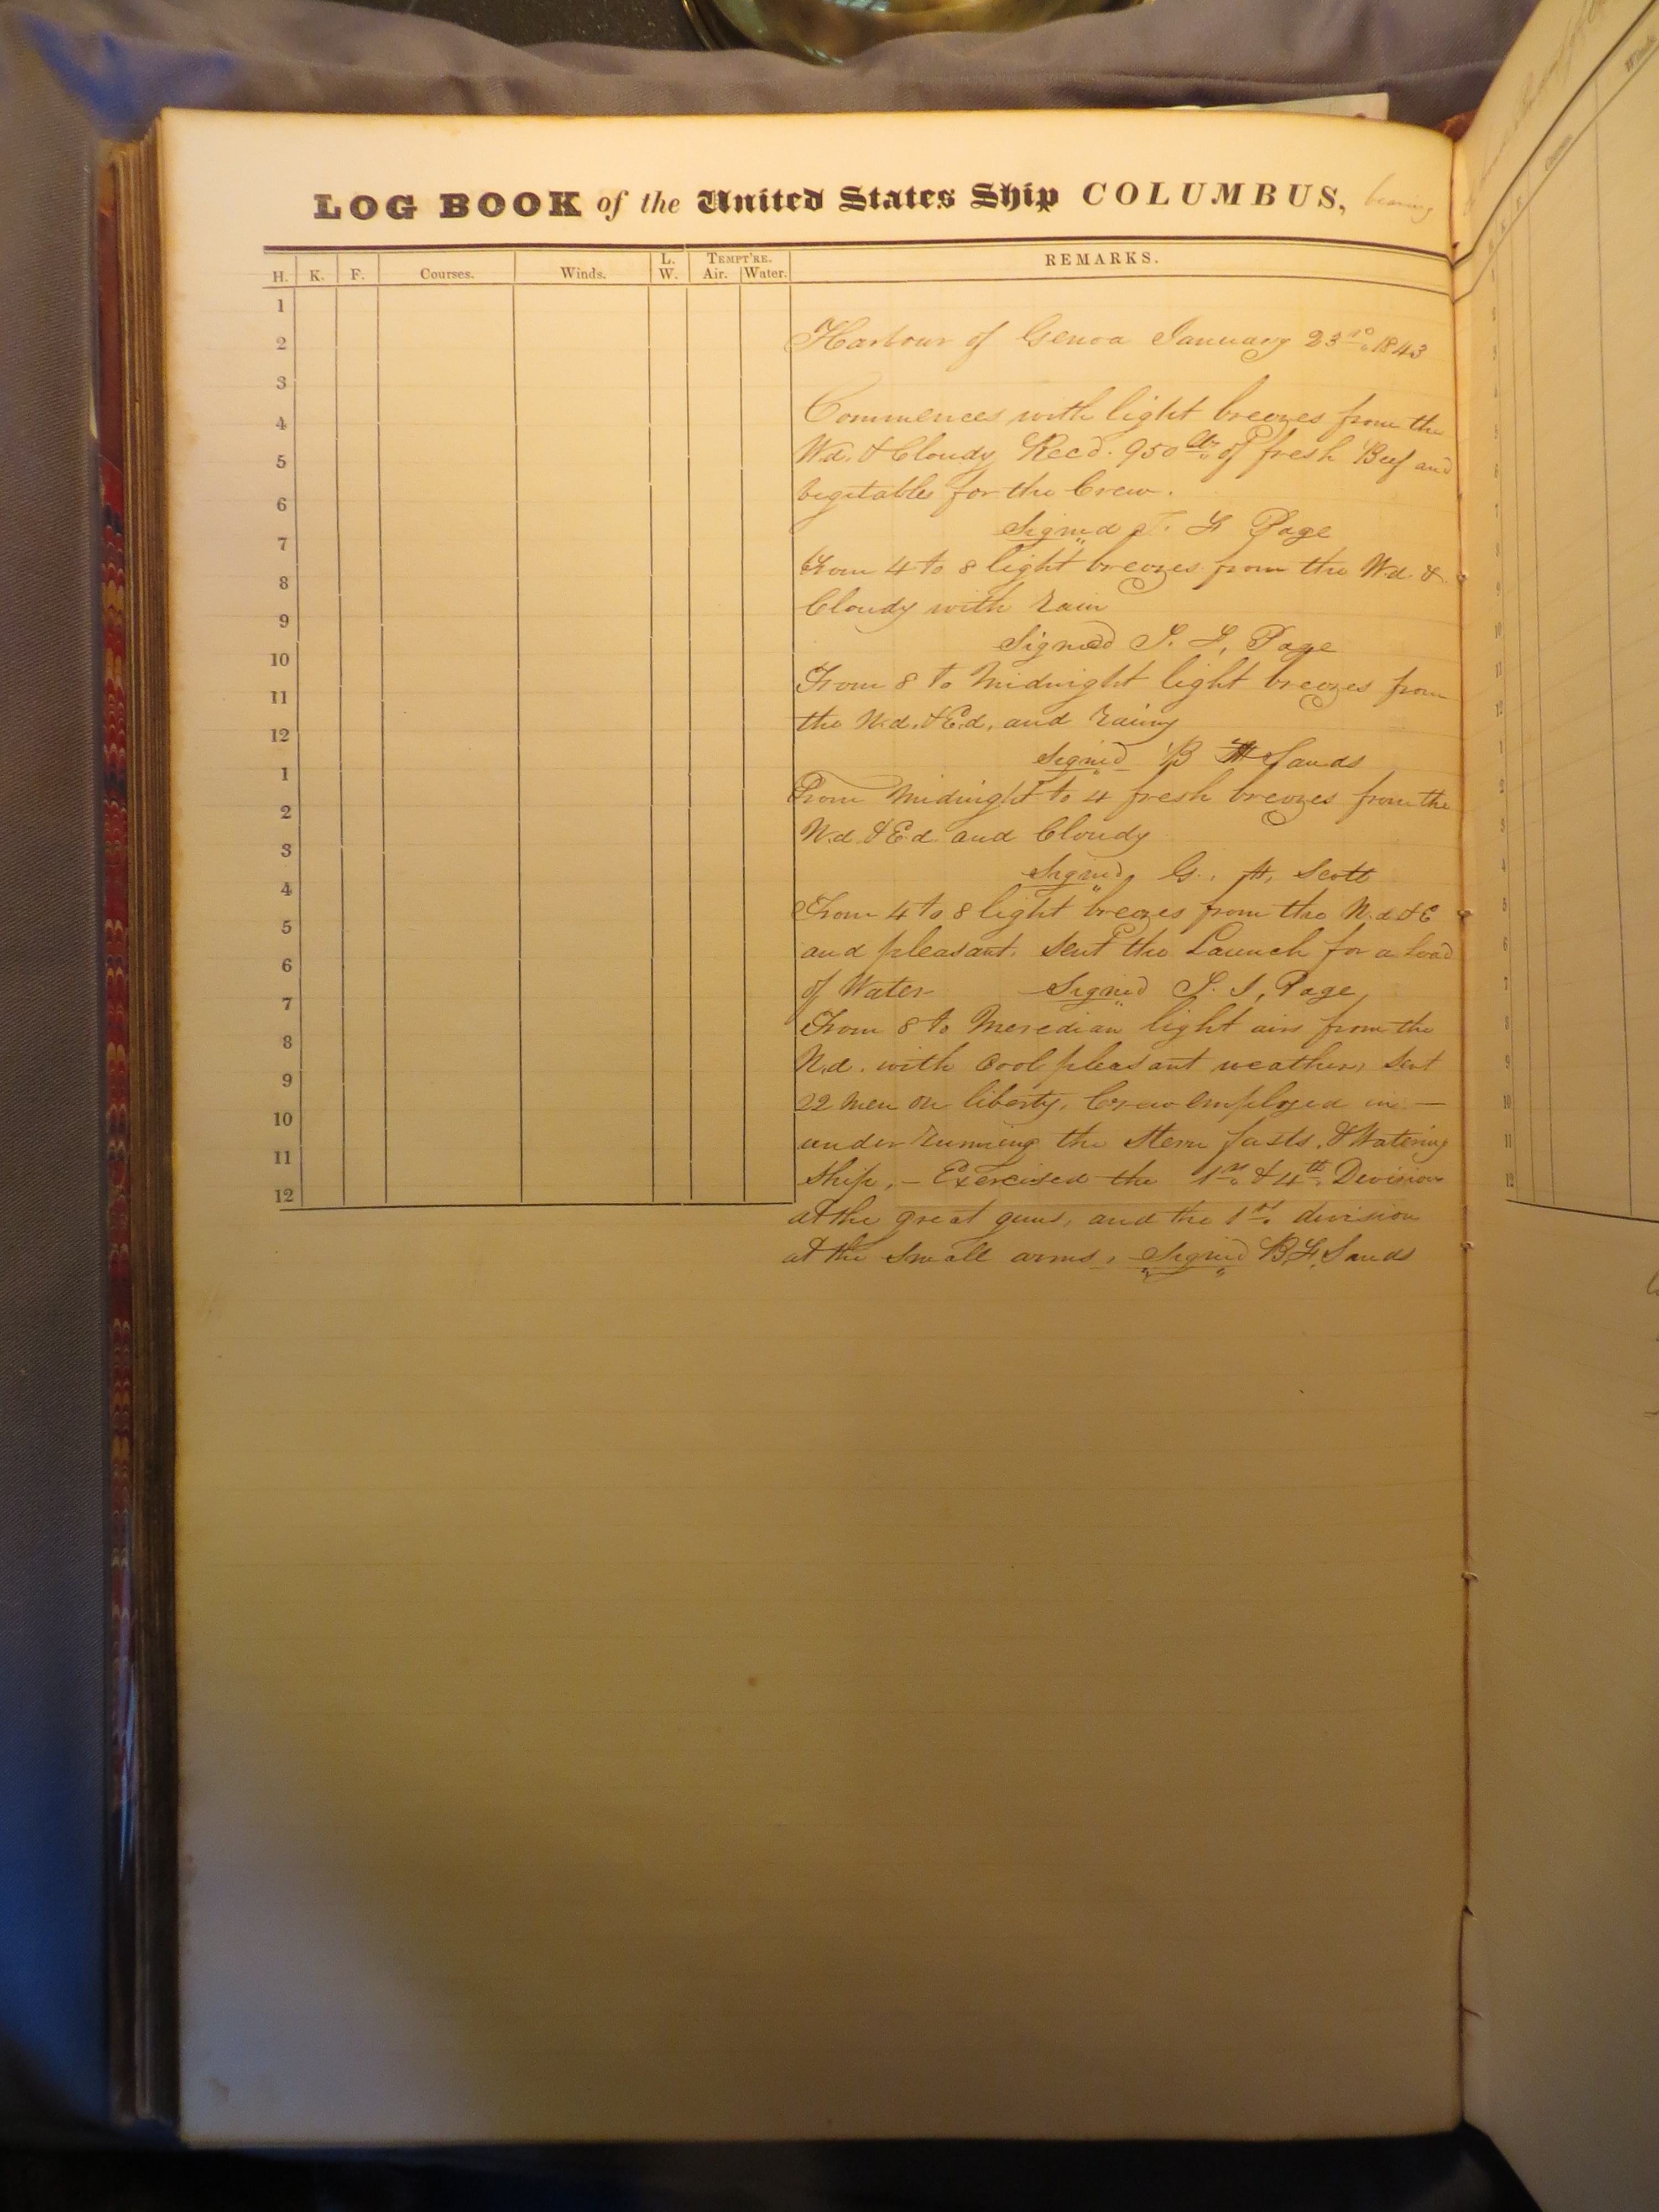 LOG BOOK of the United States Ship COLUMBUS,
H. K. F. Courses. Winds. L. W. TEMPT'RE. Air. Water. REMARKS.
1
2
3
4
5
6
7
8
9
10
11
12
1
2
3
4
5
6
7
8
9
10
11
12
Harbour of Genoa January 23rd 1843
Commences with light breezes from the
Wd. & Cloudy Recd. 950 lbs of fresh Beef and
begitables for the Crew.
Signed T. J. Page
From 4 to 8 light breezes from the Wd. &
Cloudy with rain
Signed T. J. Page
From 8 to Midnight light breezes from
the Nd. & Ed. and rainy
Signed B F Sands
From Midnight to 4 fresh breezes from the
Nd. & Ed. and Cloudy
Signed G. H. Scott
From 4 to 8 light breezes from the N.d. & E
and pleasant. Sent the Launch for a load
of Water Signed T. J. Page
From 8 to Meredian light airs from the
N.d. with Cool pleasant weather, Sent
22 Men on liberty. Crew employed in —
under running the Stern fasts. & Watering
Ship, — Exercised the 1st & 4th. Division
at the great guns, and the 1st. division
at the Small arms, Signed B.F. Sands